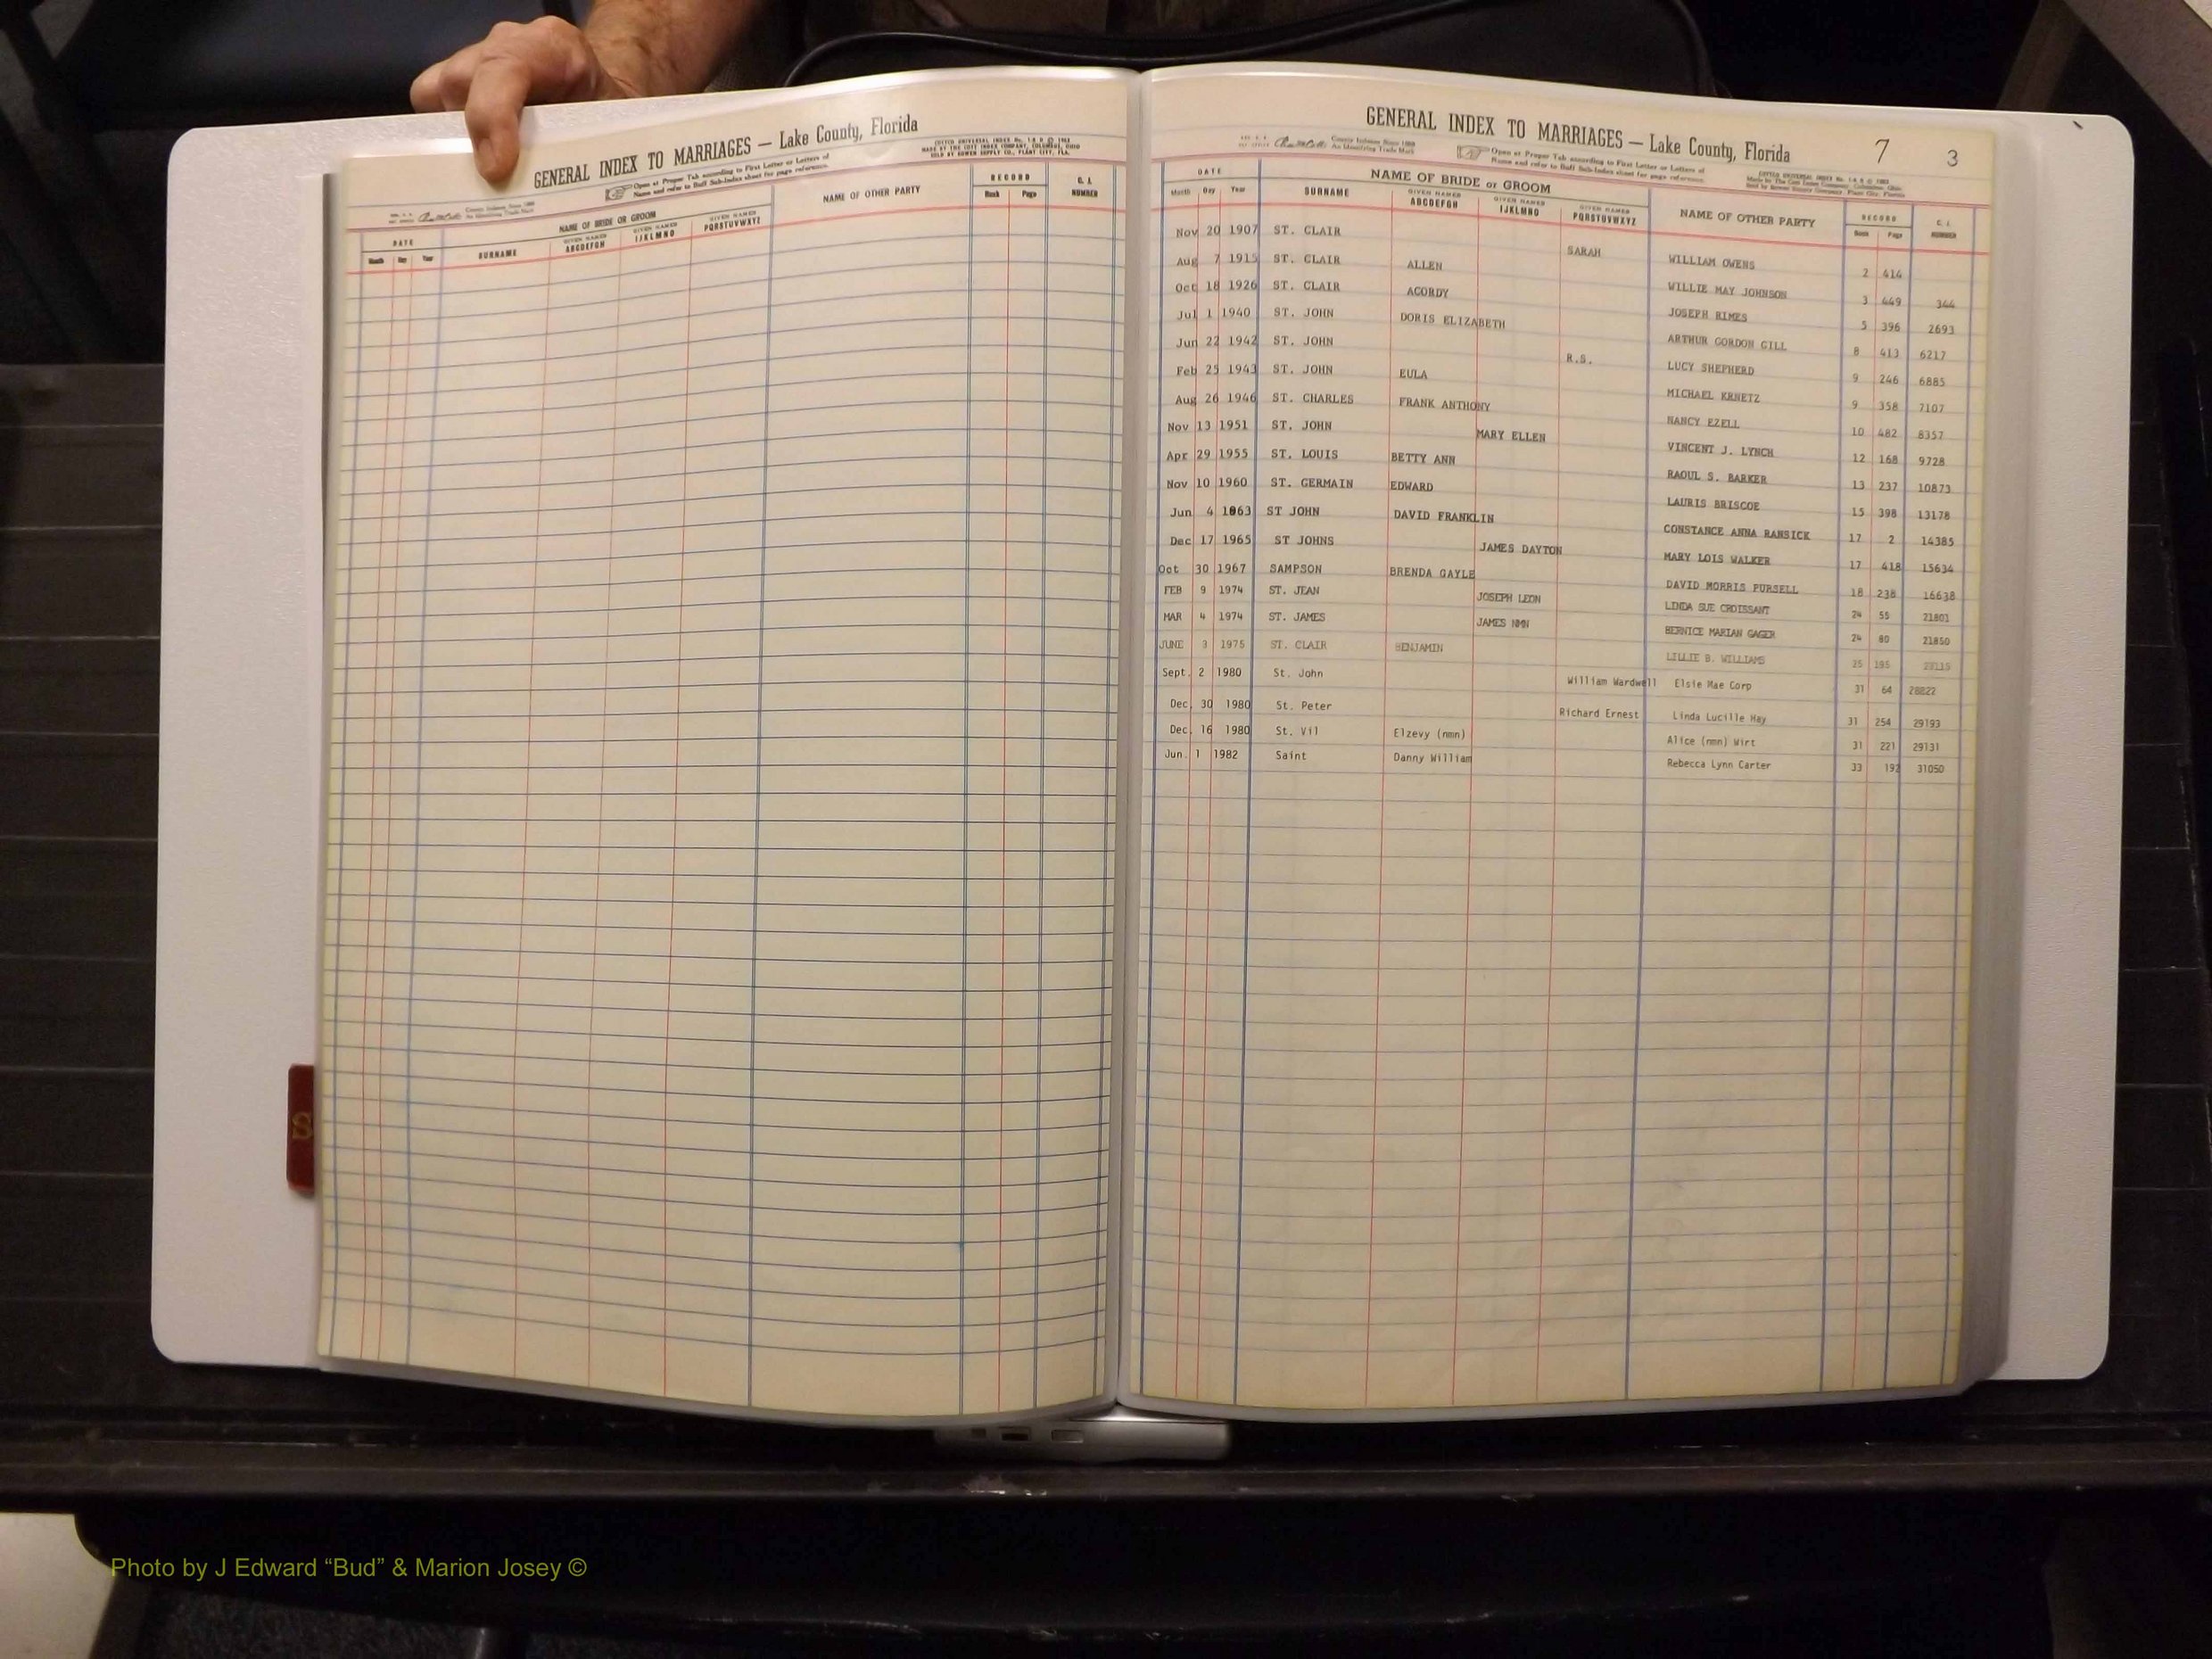 GENERAL INDEX TO MARRIAGES — Lake County, Florida
COTT'S UNIVERSAL INDEX
MADE BY THE COTT INDEX COMPANY, COLUMBUS, OHIO
SOLD BY BOWEN SUPPLY CO., PLANT CITY, FLA.
Open at Proper Tab according to First Letter or Letters of
Name and refer to Buff Sub-Index sheet for page reference.
County Indexes Since 1888
An Identifying Trade Mark
DATE NAME OF BRIDE OR GROOM NAME OF OTHER PARTY RECORD G. I. NUMBER
Month Day Year SURNAME GIVEN NAMES ABCDEFGH GIVEN NAMES IJKLMNO GIVEN NAMES PQRSTUVWXYZ Book Page
S
GENERAL INDEX TO MARRIAGES — Lake County, Florida 7 3
County Indexes Since 1888
An Identifying Trade Mark
Open at Proper Tab according to First Letter or Letters of
Name and refer to Buff Sub-Index sheet for page reference.
DATE NAME OF BRIDE or GROOM NAME OF OTHER PARTY RECORD G. I. NUMBER
Month Day Year SURNAME GIVEN NAMES ABCDEFGH GIVEN NAMES IJKLMNO GIVEN NAMES PQRSTUVWXYZ Book Page
Nov 20 1907 ST. CLAIR SARAH WILLIAM OWENS 2 414
Aug 7 1915 ST. CLAIR ALLEN WILLIE MAY JOHNSON 3 449 344
Oct 18 1926 ST. CLAIR ACORDY JOSEPH RIMES 5 396 2693
Jul 1 1940 ST. JOHN DORIS ELIZABETH ARTHUR GORDON GILL 8 413 6217
Jun 22 1942 ST. JOHN R.S. LUCY SHEPHERD 9 246 6885
Feb 25 1943 ST. JOHN EULA MICHAEL KRNETZ 9 358 7107
Aug 26 1946 ST. CHARLES FRANK ANTHONY NANCY EZELL 10 482 8357
Nov 13 1951 ST. JOHN MARY ELLEN VINCENT J. LYNCH 12 168 9728
Apr 29 1955 ST. LOUIS BETTY ANN RAOUL S. BARKER 13 237 10873
Nov 10 1960 ST. GERMAIN EDWARD LAURIS BRISCOE 15 398 13178
Jun 4 1963 ST JOHN DAVID FRANKLIN CONSTANCE ANNA RANSICK 17 2 14385
Dec 17 1965 ST JOHNS JAMES DAYTON MARY LOIS WALKER 17 418 15634
Oct 30 1967 SAMPSON BRENDA GAYLE DAVID MORRIS PURSELL 18 238 16638
FEB 9 1974 ST. JEAN JOSEPH LEON LINDA SUE CROISSANT 24 55 21801
MAR 4 1974 ST. JAMES JAMES NMN BERNICE MARIAN GAGER 24 80 21850
JUNE 3 1975 ST. CLAIR BENJAMIN LILLIE B. WILLIAMS 25 195
Sept. 2 1980 St. John William Wardwell Elsie Mae Corp 31 64 28822
Dec. 30 1980 St. Peter Richard Ernest Linda Lucille Hay 31 254 29193
Dec. 16 1980 St. Vil Elzevy (nmn) Alice (nmn) Wirt 31 221 29131
Jun. 1 1982 Saint Danny William Rebecca Lynn Carter 33 192 31050
Photo by J Edward “Bud” & Marion Josey ©